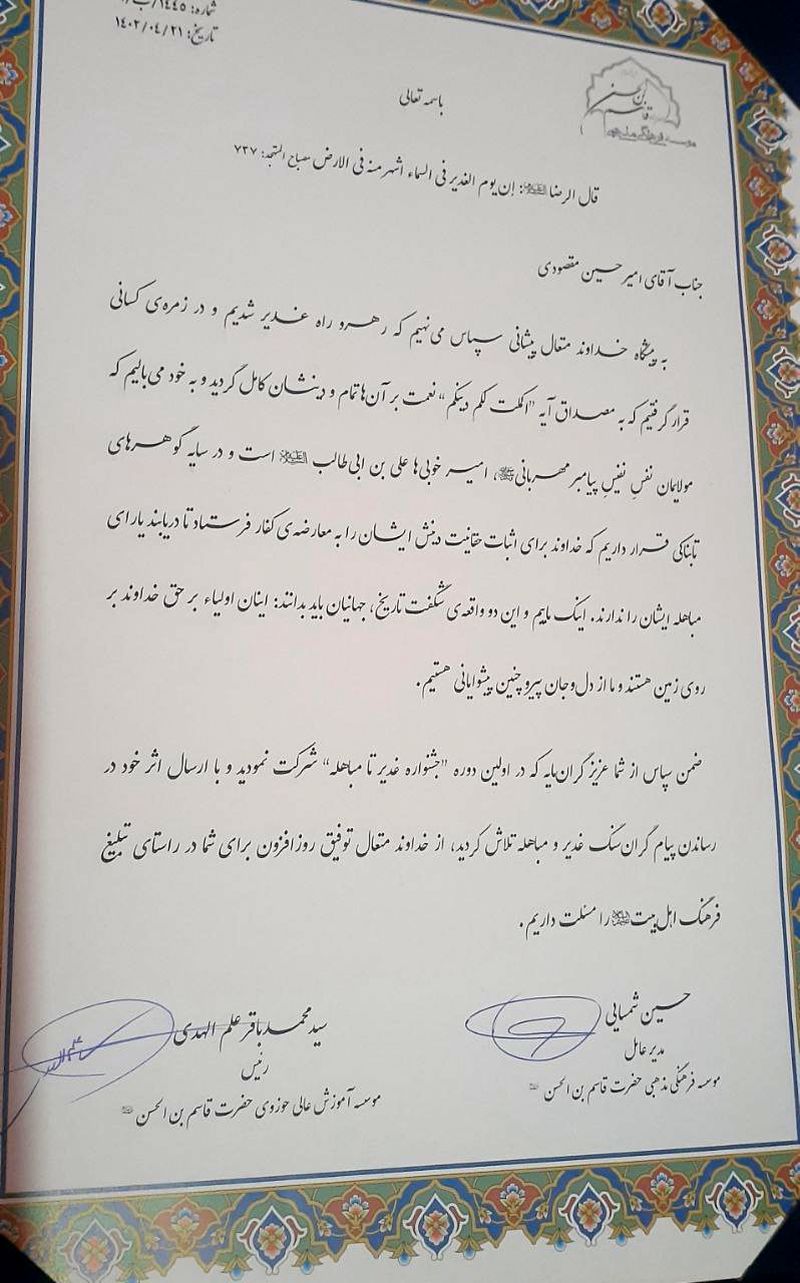 شماره: ۱۴۴۵/ب/
تاریخ: ۱۴۰۲/۰۴/۲۱
باسمه تعالی
موسسه فرهنگی مذهبی
قال الرضا علیه‌السلام: إن یوم الغدیر فی السماء أشهر منه فی الارض مصباح المتهجد: ۷۳۷
جناب آقای امیرحسین مقصودی
به پیشگاه خداوند متعال پیشانی سپاس می‌نهیم که رهرو راه غدیر شدیم و در زمره‌ی کسانی
قرار گرفتیم که به مصداق آیه "اکملت لکم دینکم" نعمت بر آن‌ها تمام و دینشان کامل گردید و به خود می‌بالیم که
مولایمان نفسِ نفیسِ پیامبر مهربانی ﷺ، امیر خوبی‌ها علی بن ابی‌طالب علیه‌السلام است و در سایه گوهرهای
تابناکی قرار داریم که خداوند برای اثبات حقانیت دینش ایشان را به معارضه‌ی کفار فرستاد تا دریابند یارای
مباهله ایشان را ندارند. اینک ماییم و این دو واقعه‌ی شگفت تاریخ، جهانیان باید بدانند: اینان اولیاء بر حق خداوند بر
روی زمین هستند و ما از دل و جان پیرو چنین پیشوایانی هستیم.
ضمن سپاس از شما عزیز گران‌مایه که در اولین دوره "جشنواره غدیر تا مباهله" شرکت نمودید و با ارسال اثر خود در
رساندن پیام گران‌سنگ غدیر و مباهله تلاش کردید، از خداوند متعال توفیق روزافزون برای شما در راستای تبلیغ
فرهنگ اهل‌بیت را مسئلت داریم.
حسین شمسایی
مدیر عامل
موسسه فرهنگی مذهبی حضرت قاسم بن الحسن
سید محمدباقر علم الهدی
رئیس
موسسه آموزش عالی حوزوی حضرت قاسم بن الحسن